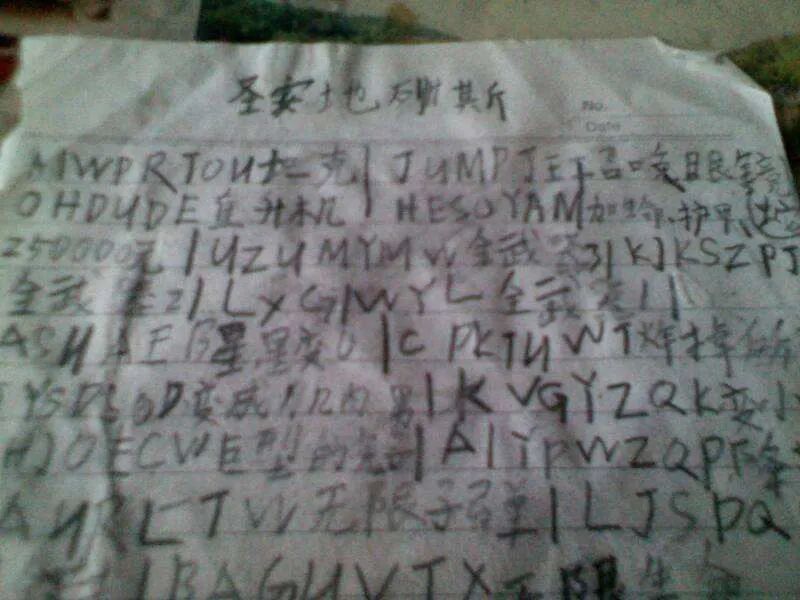 圣安地列斯
No.
Date
AIWPRTOU坦克|JUMPJET召唤眼镜
OHDUDE直升机|HESOYAM加命,护甲,
250000元|UZUMYMW全武器3|KJKSZPJ
全武器2|LXGIWYL全武器1|
星星变0|CPKTUWT炸掉所
YSDSOD变成肌肉男|KVGYZQK变小
HJOECWE型的|AIYPWZQP降
无限子弹|LJSPQ
|BAGUVIX无限生命